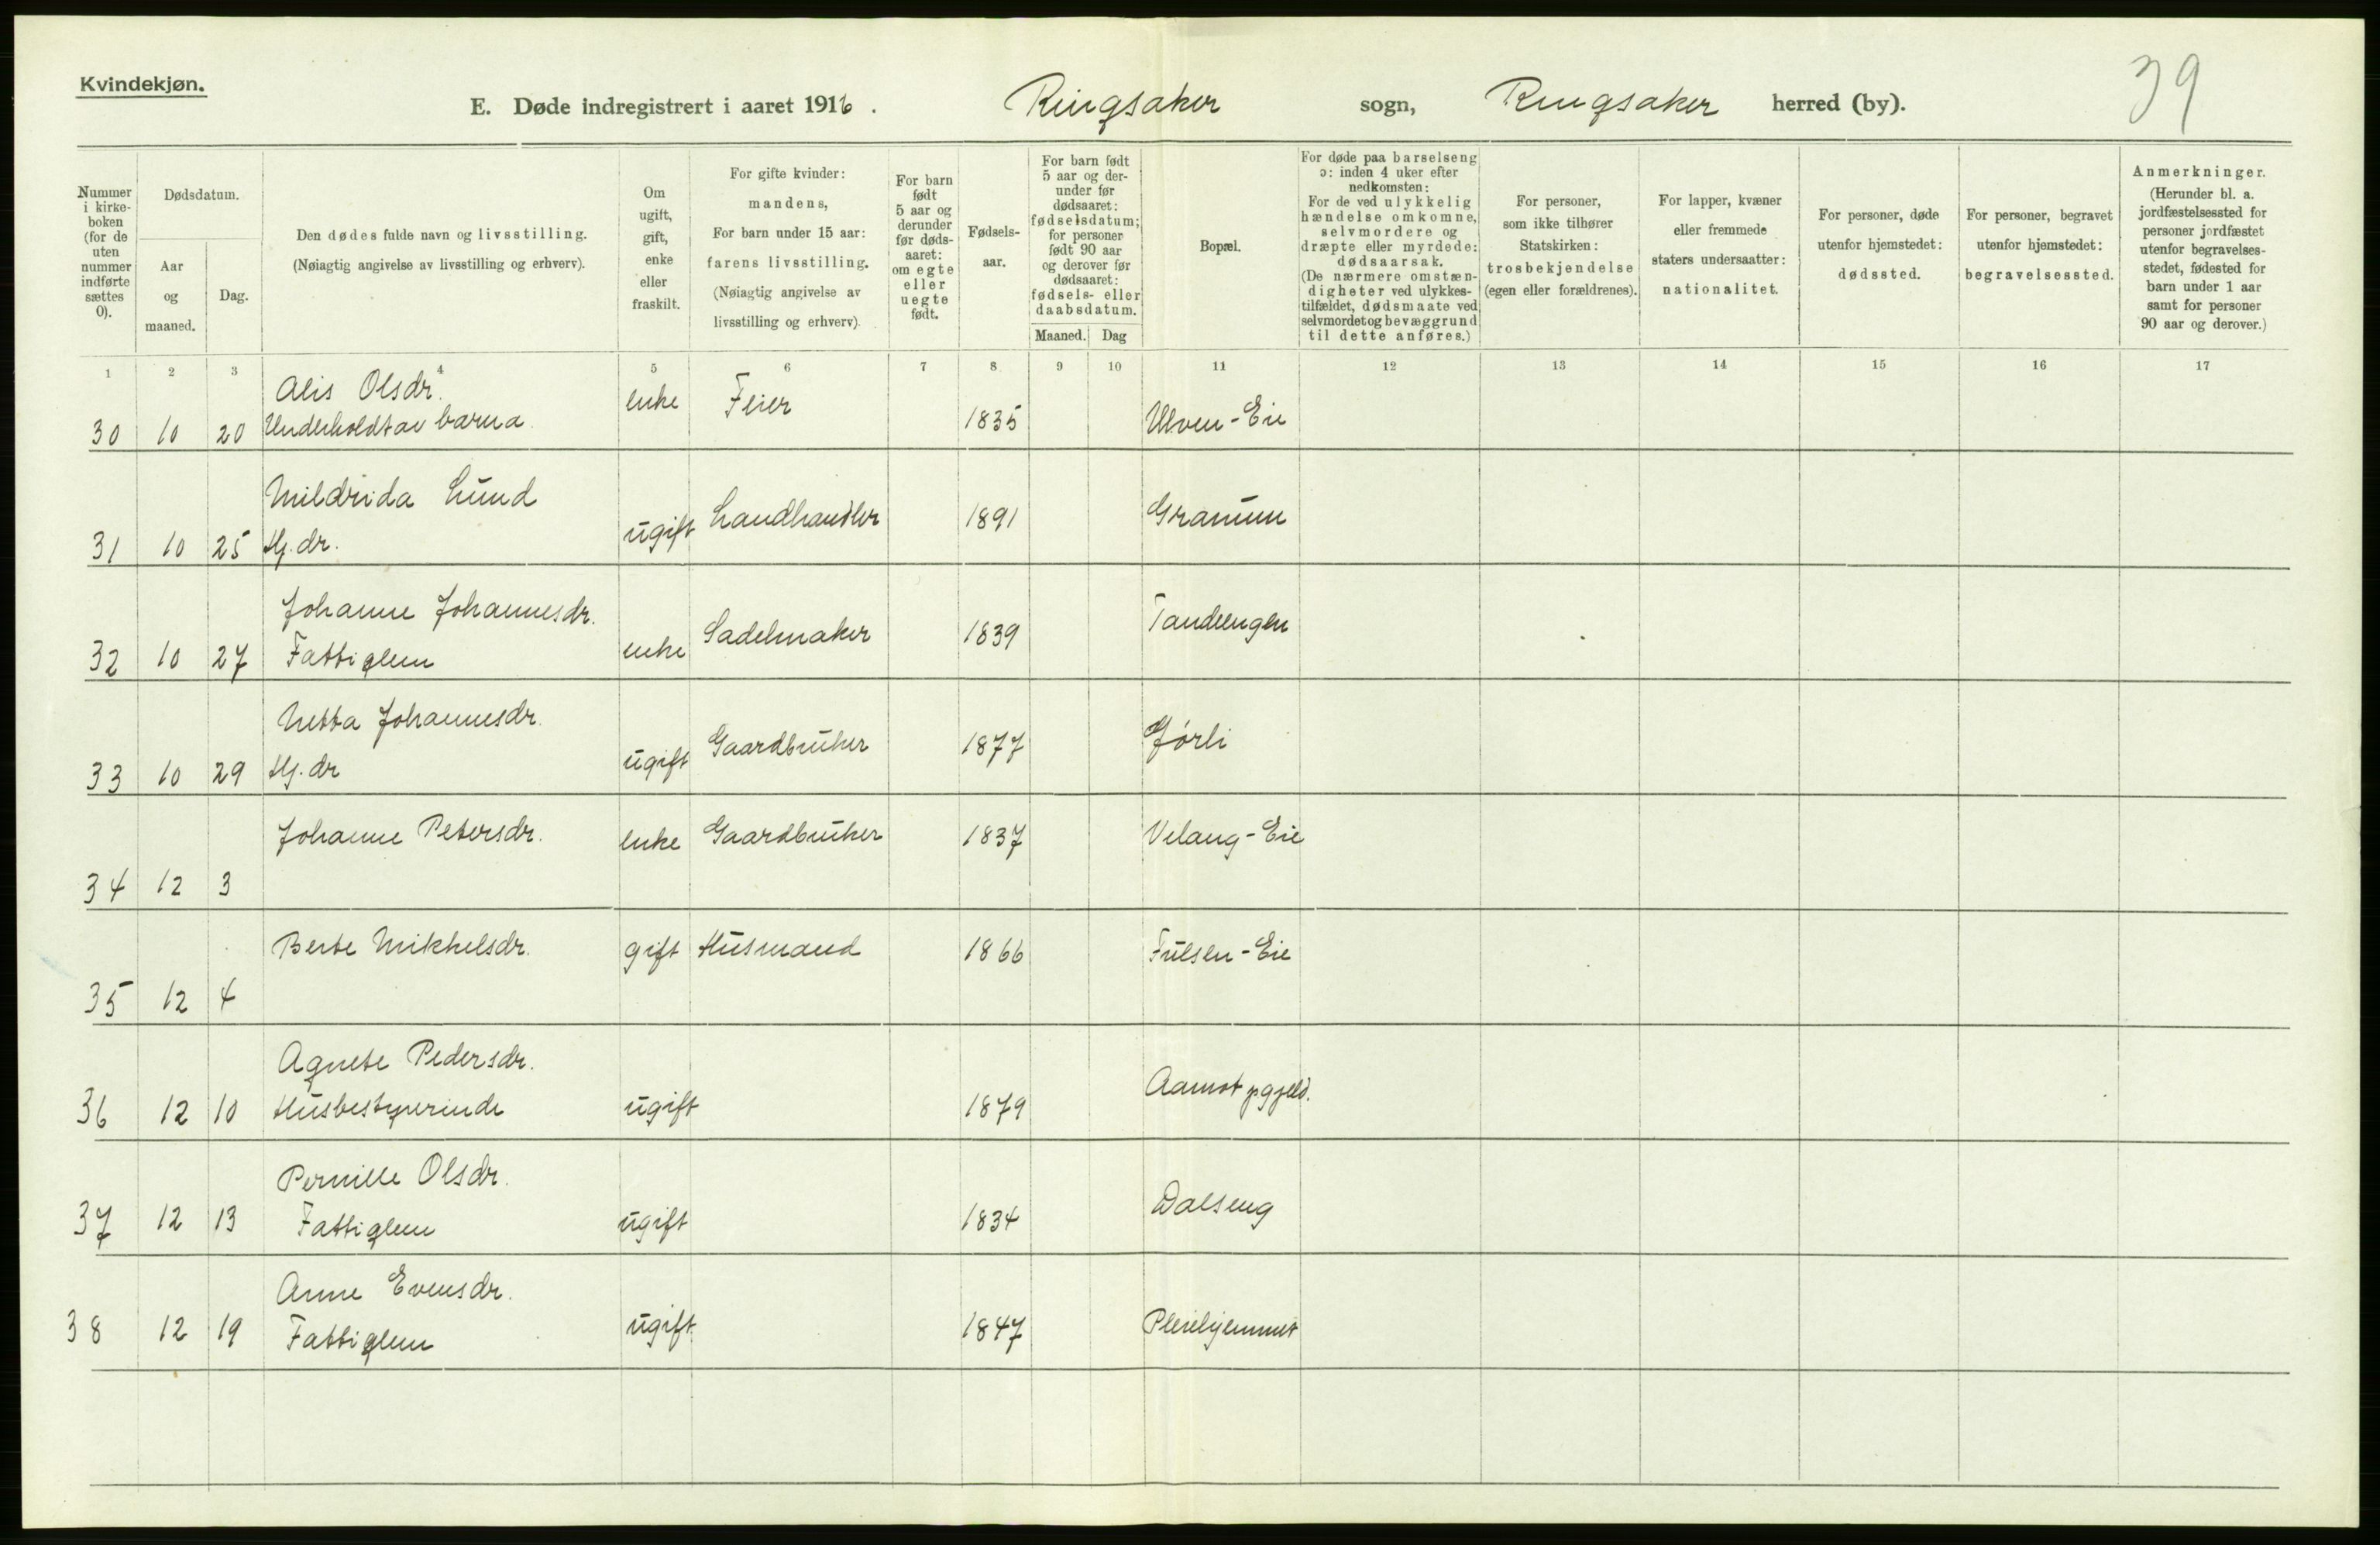 Kvindekjøn.
E. Døde indregistrert i aaret 1916. Ringsaker sogn, Ringsaker herred (by).
39
Nummer i kirke-boken (for de uten nummer indførte sættes 0).
Dødsdatum.
Aar og maaned.
Dag.
Den dødes fulde navn og livsstilling.
(Nøiagtig angivelse av livsstilling og erhverv).
Om ugift, gift, enke eller fraskilt.
For gifte kvinder: mandens,
For barn under 15 aar: farens livsstilling.
(Nøiagtig angivelse av livsstilling og erhverv).
For barn født 5 aar og derunder før døds-aaret: om egte eller uegte født.
Fødsels-aar.
For barn født 5 aar og der-under før dødsaaret: fødselsdatum; for personer født 90 aar og derover før dødsaaret: fødsels- eller daabsdatum.
Maaned. Dag
Bopæl.
For døde paa barselseng ɔ: inden 4 uker efter nedkomsten:
For de ved ulykkelig hændelse omkomne, selvmordere og dræpte eller myrdede: dødsaarsak.
(De nærmere omstæn-digheter ved ulykkes-tilfældet, dødsmaate ved selvmordet og bevæggrund til dette anføres.)
For personer, som ikke tilhører Statskirken: trosbekjendelse (egen eller forældrenes).
For lapper, kvæner eller fremmede staters undersaatter: nationalitet.
For personer, døde utenfor hjemstedet: dødssted.
For personer, begravet utenfor hjemstedet: begravelsessted.
Anmerkninger.
(Herunder bl. a. jordfæstelsessted for personer jordfæstet utenfor begravelses-stedet, fødested for barn under 1 aar samt for personer 90 aar og derover.)
1 2 3 4 5 6 7 8 9 10 11 12 13 14 15 16 17
Alis Olsdr. enke Feier
30 10 20 Underholdt av barna 1835 Ulven-Eie
Mildrida Lund Landhandler 1891 Granum
31 10 25 Hj. dr. ugift
Johanne Johannesdr. Sadelmaker 1839 Tandeengen
32 10 27 Fattiglem enke
Netta Johannesdr. Gaardbruker 1877 Gjørli
33 10 29 Hj. dr ugift
Johanne Petersdr. enke Gaardbruker 1837 Velang-Eie
34 12 3
Berte Mikkelsdr. gift Husmand 1866 Fulsen-Eie
35 12 4
Agnete Pedersdr. Aamot pgjeld.
36 12 10 Husbestyrerinde ugift 1879
Pernille Olsdr. Dalseng
37 12 13 Fattiglem ugift 1834
Anne Evensdr.
38 12 19 Fattiglem ugift 1847 Pleiehjemmet